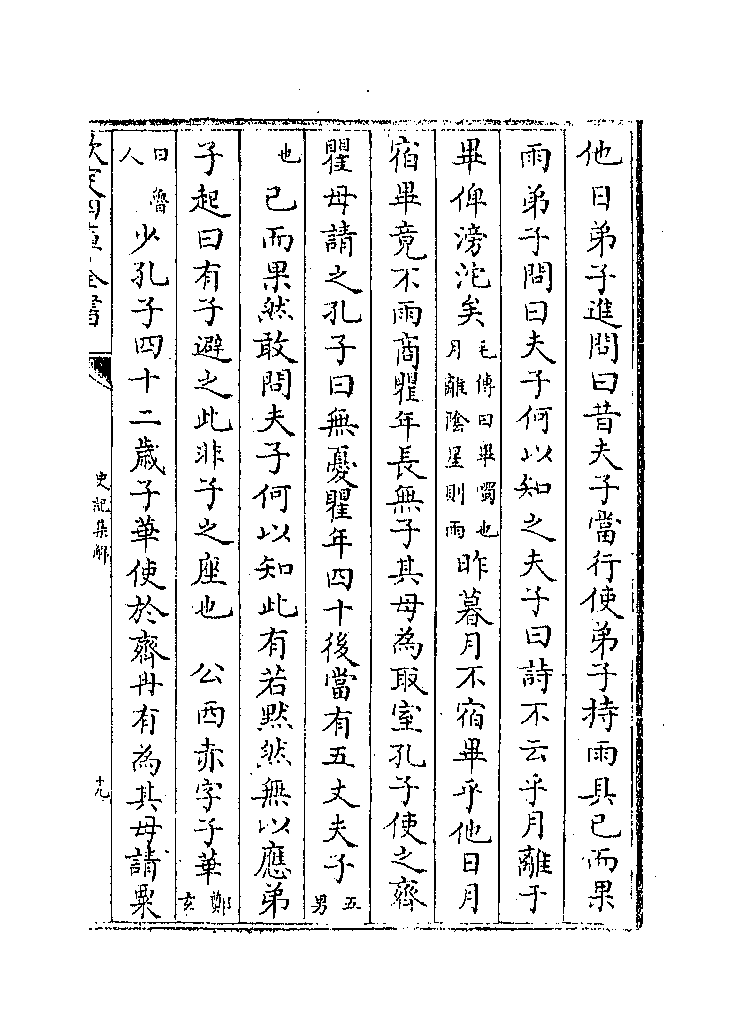 他日弟子進問曰昔夫子當行使弟子持雨具已而果
雨弟子問曰夫子何以知之夫子曰詩不云乎月離于
畢俾滂沱矣毛傳曰畢噣也月離陰星則雨昨暮月不宿畢乎他日月
宿畢竟不雨商瞿年長無子其母為取室孔子使之齊
瞿母請之孔子曰無憂瞿年四十後當有五丈夫子五男
也已而果然敢問夫子何以知此有若黙然無以應弟
子起曰有子避之此非子之座也 公西赤字子華鄭玄
曰魯人少孔子四十二歲子華使於齊冉有為其母請粟
欽定四庫全書
史記集解
十九